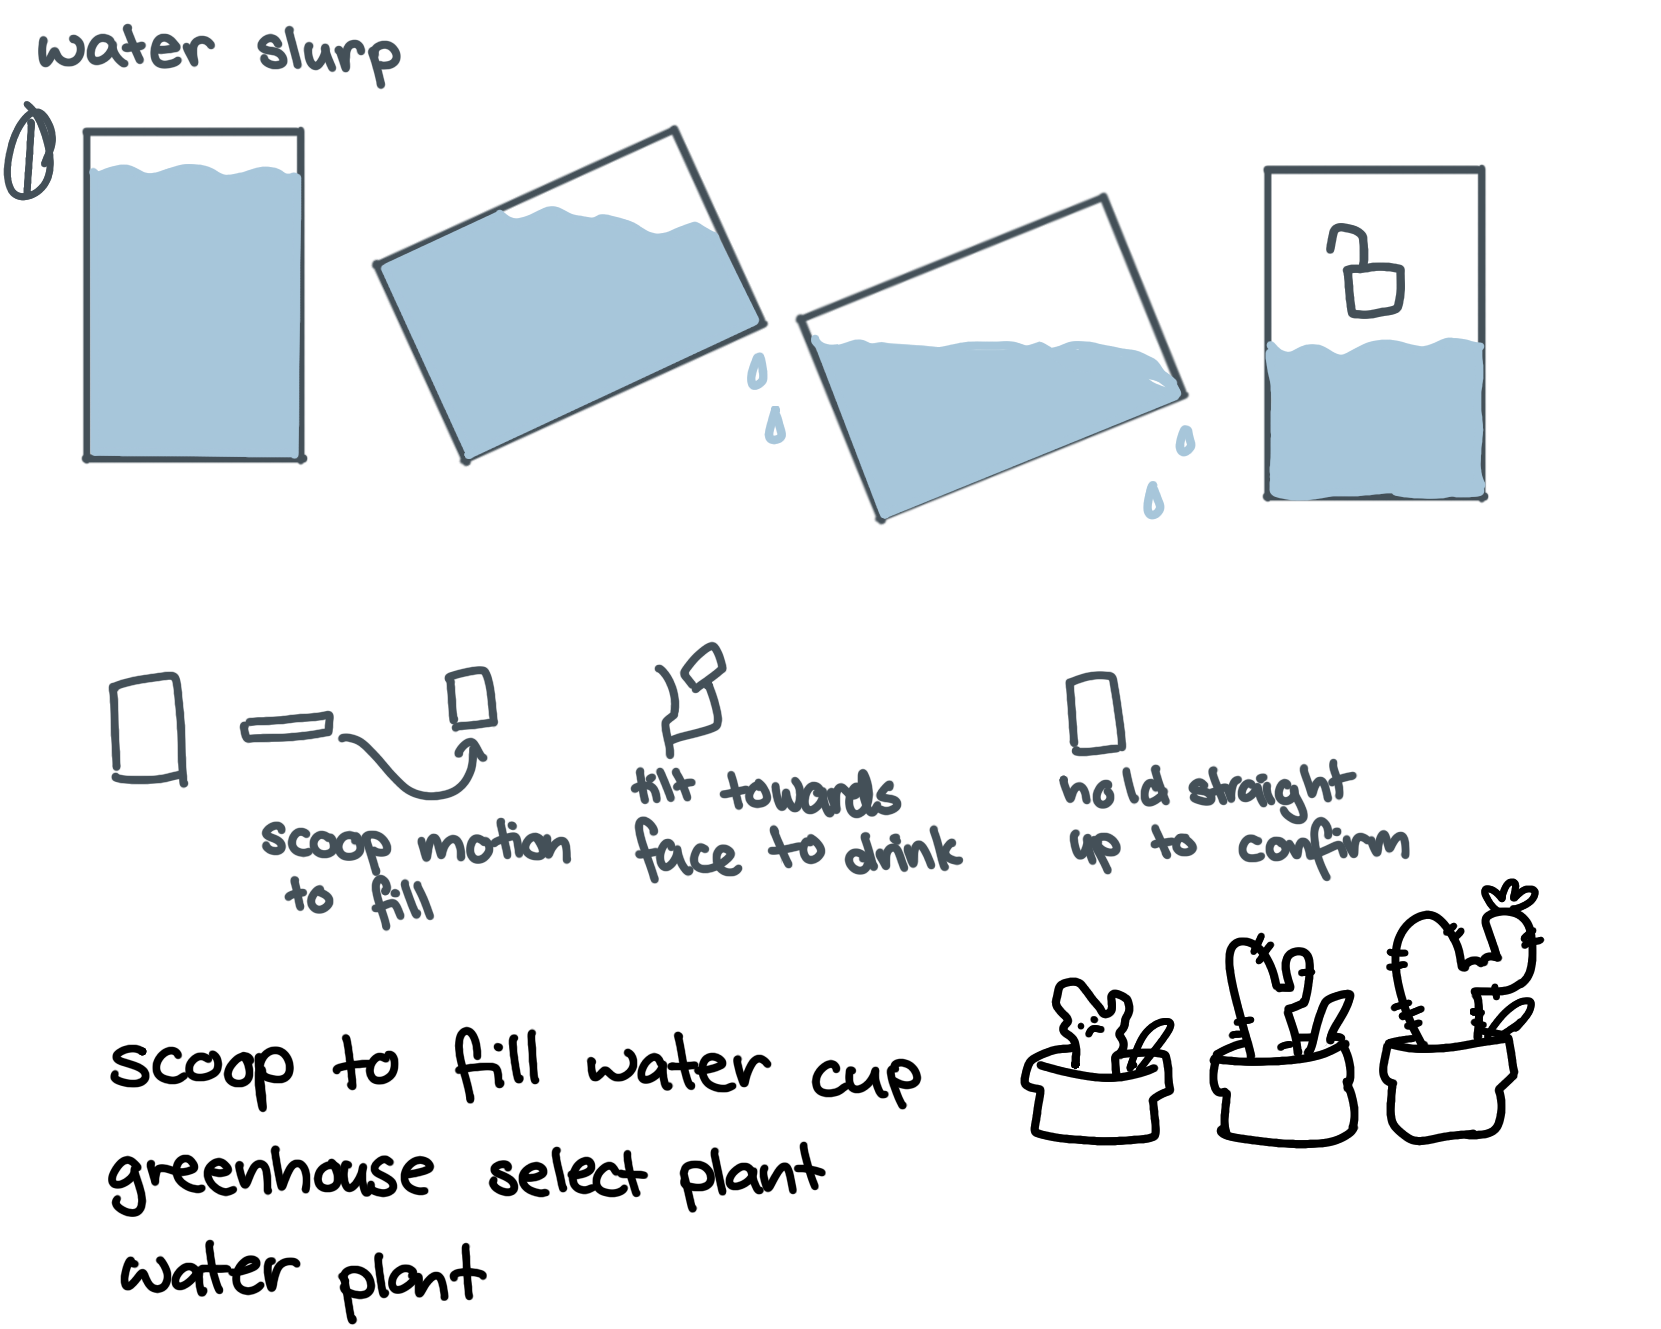 water slurp
scoop motion
to fill
tilt towards
face to drink
hold straight
up to confirm
scoop to fill water cup
greenhouse select plant
water plant